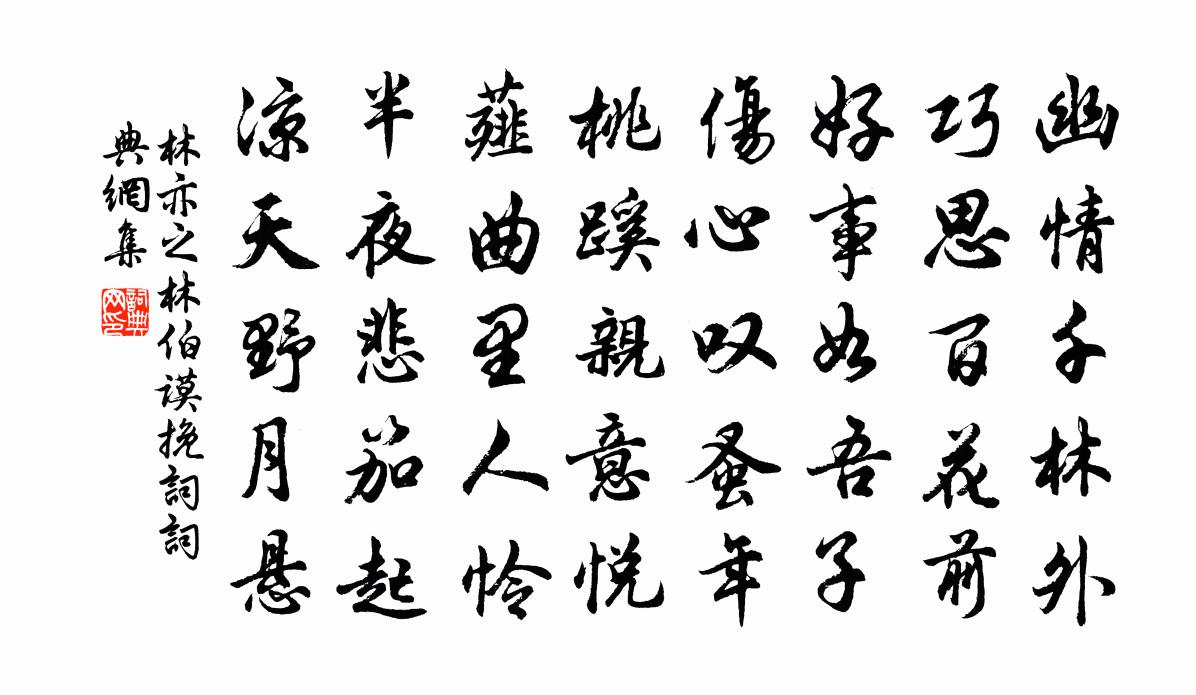 幽情千林外
巧思百花前
好事如吾子
傷心叹蚤年
桃蹊親意悦
薤曲里人怜
半夜悲笳起
凉天野月悬
林亦之林伯谟挽詞詞
典網集
詞典网印